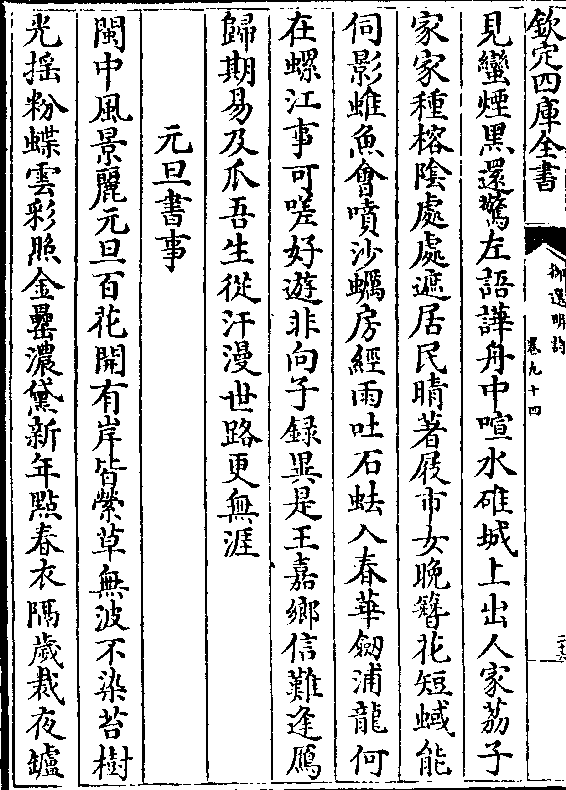 欽定四庫全書
御選明詩
卷九十四
見蠻煙黑還驚左語譁舟中喧水碓城上出人家荔子
家家種榕陰處處遮居民晴著屐市女晚簪花短蜮能
伺影蜼魚會噴沙蠣房經雨吐石蚨入春華劒浦龍何
在螺江事可嗟好遊非向子録異是王嘉鄉信難逢鴈
歸期易及瓜吾生從汗漫世路更無涯
元旦書事
閩中風景麗元旦百花開有岸皆縈草無波不染苔樹
光揺粉蝶雲彩照金罍濃黛新年點春衣隔歲裁夜鑪